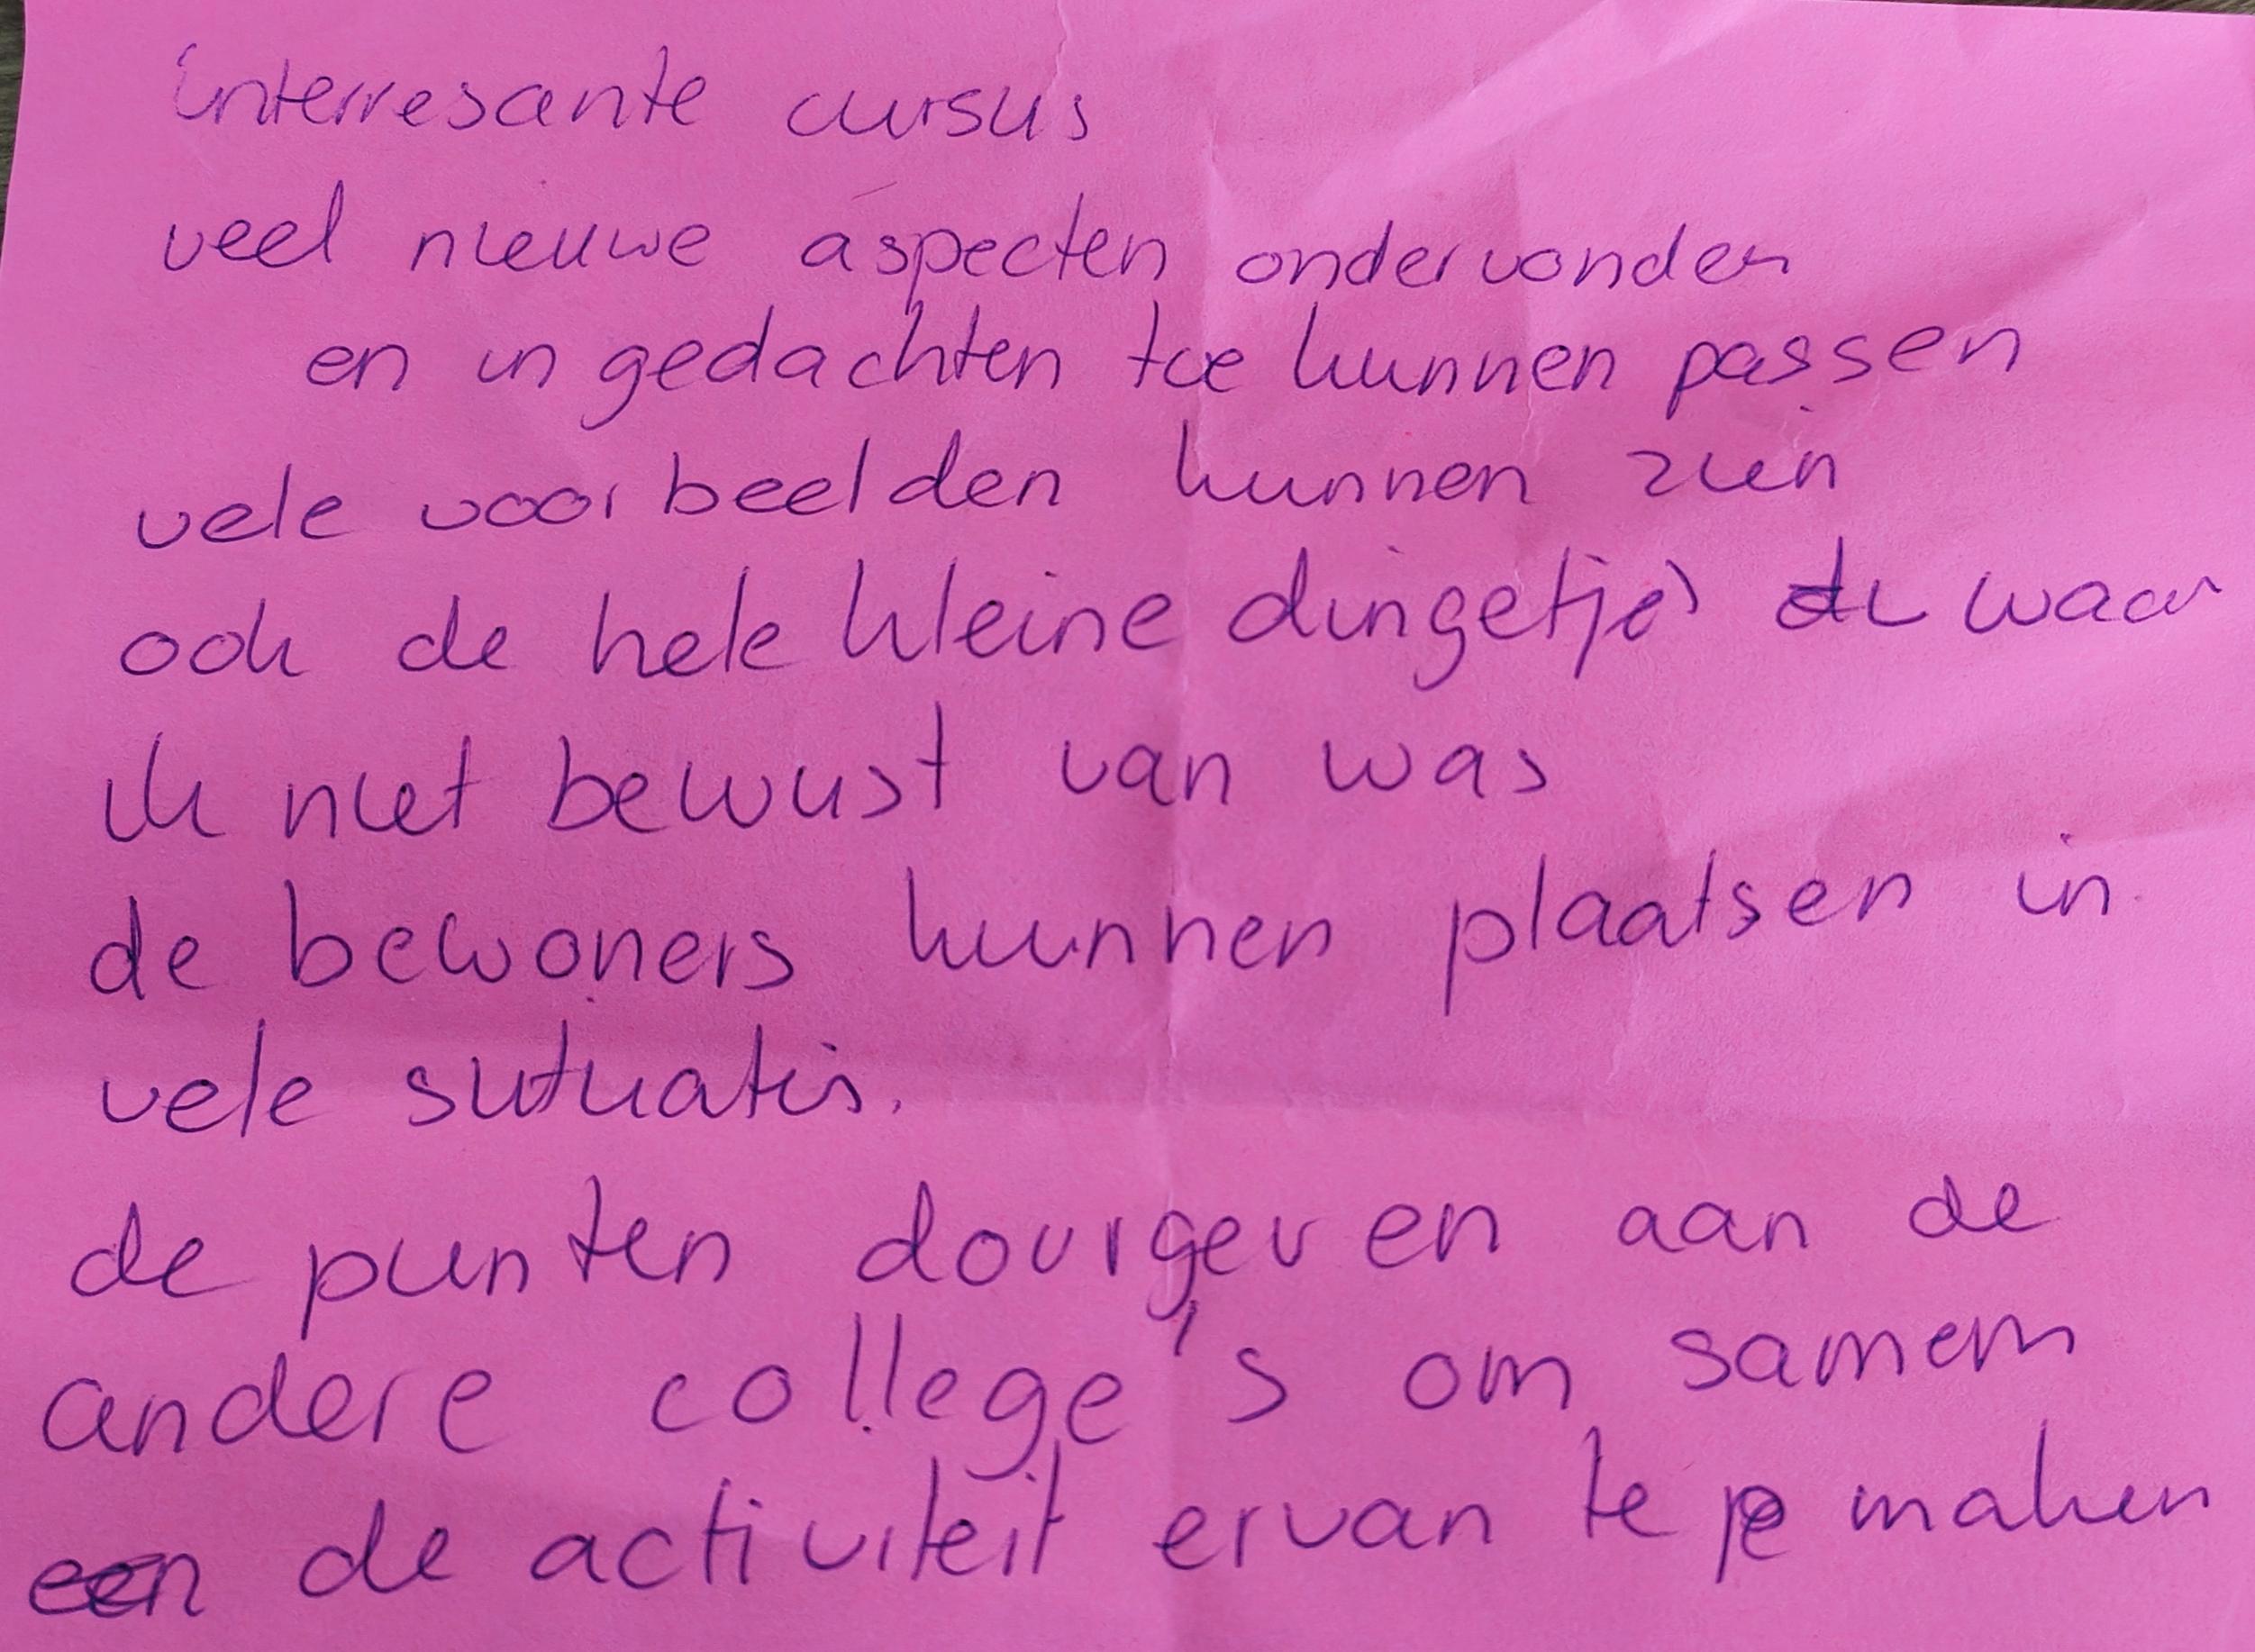 interresante cursus
veel nieuwe aspecten ondervonden
en in gedachten toe kunnen passen
vele voorbeelden kunnen zien
ook de hele kleine dingetjes waar
ik niet bewust van was
de bewoners kunnen plaatsen in
vele situaties.
de punten doorgeven aan de
andere college's om samen
de activiteit ervan te maken